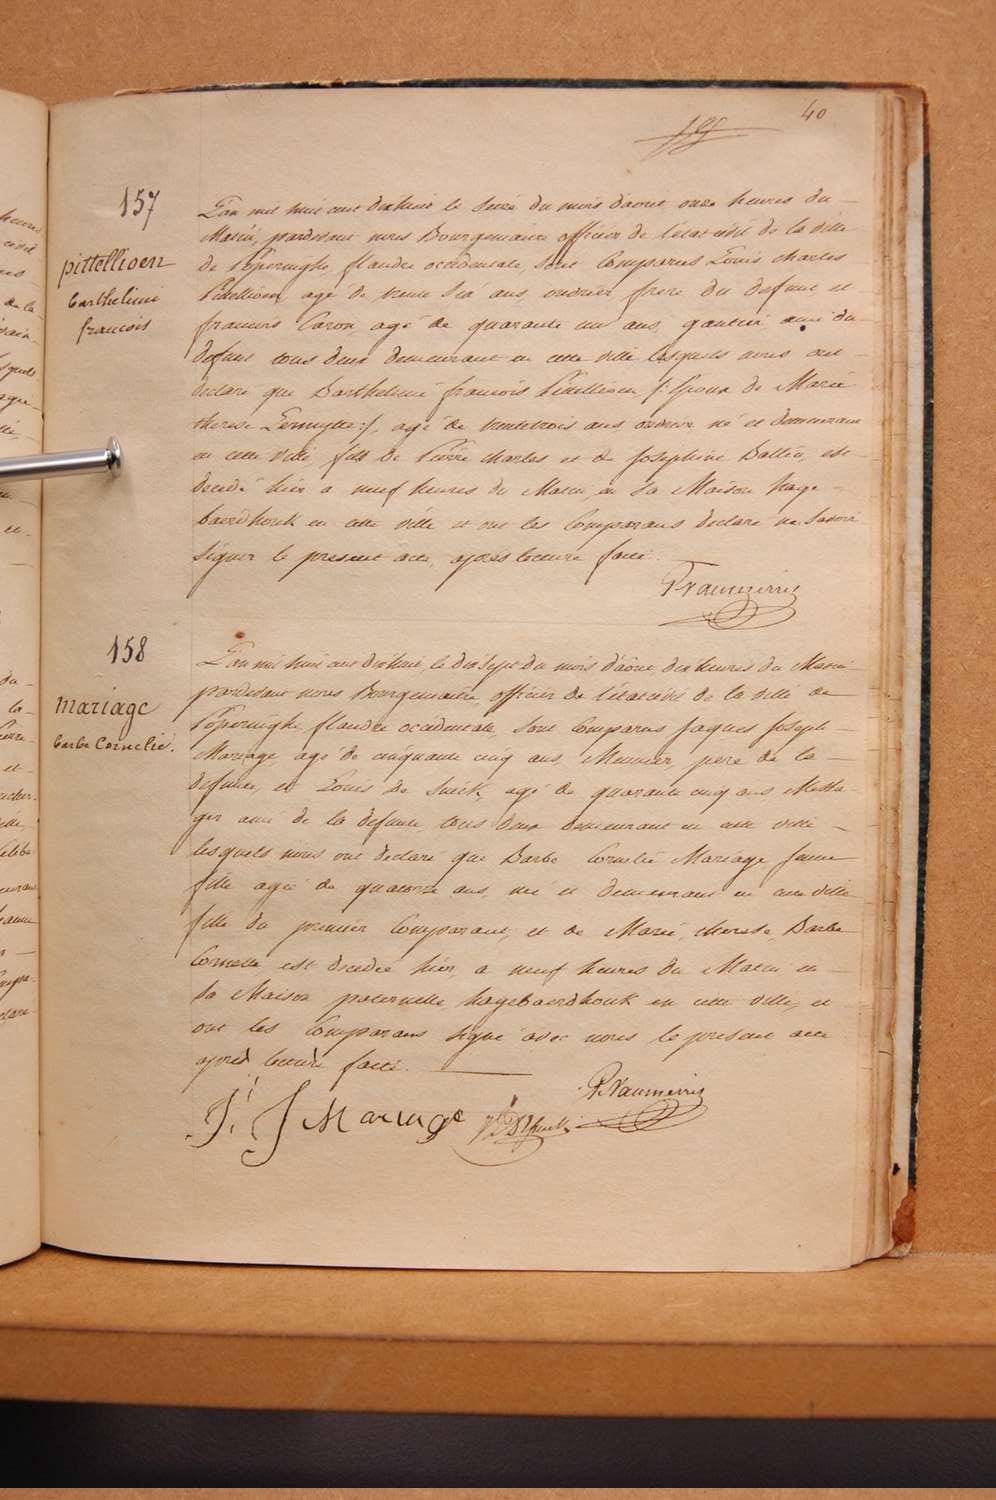 40
157
pittellioen
Barthelimi
francois
L'an mil huit cent dixhuit le seize du mois d'aout, onze heures du
Matin, pardevant nous Bourguemaitre officier de l'etat civil de la ville
de Poperinghe flandre occidentale, sont Comparus Louis charles
Pitellioen agé de trente six ans, ouvrier frere du defunt et
francois Caron, agé de quarante un ans, gantier ami du
defunt tous deux demeurant en cette ville lesquels nous ont
declaré que Barthelimi francois Pitellioen /: Epoux de Marie
therese :/, agé de trentetrois ans ouvrier né et demeurant
en cette ville, fils de Pierre charles et de Josephine Battin, est
decedé hier a neuf heures du Matin, en sa Maison hage-
baerdhouk en cette ville et ont les Comparans declaré ne savoir
signer le present acte, après lecture faite.
158
Mariage
barbe Cornelie.
L'an mil huit cent dixhuit, le dix sept du mois d'aôut, dix heures du Matin
pardevant nous Bourguemaitre, officier de l'etat civil de la ville de
Poperinghe flandre occidentale, sont Comparus Jaques Joseph
Mariage, agé de cinquante cinq ans, Meunier, pere de la
defunte, et Louis de Snick, agé de quarante cinq ans Messa-
ger ami de la defunte, tous deux demeurant en cette ville
lesquels nous ont declaré que Barbe Cornelie Mariage jeune
fille agée de quatorze ans, né et demeurant en cette ville
fille du premier Comparant, et de Marie, therese, Barbe
est decedée hier, a neuf heures du Matin en
sa Maison paternelle, hagebaerdhouk en cette ville, et
ont les Comparans signé avec nous le present acte
après lecture faite.
J: J Mariage